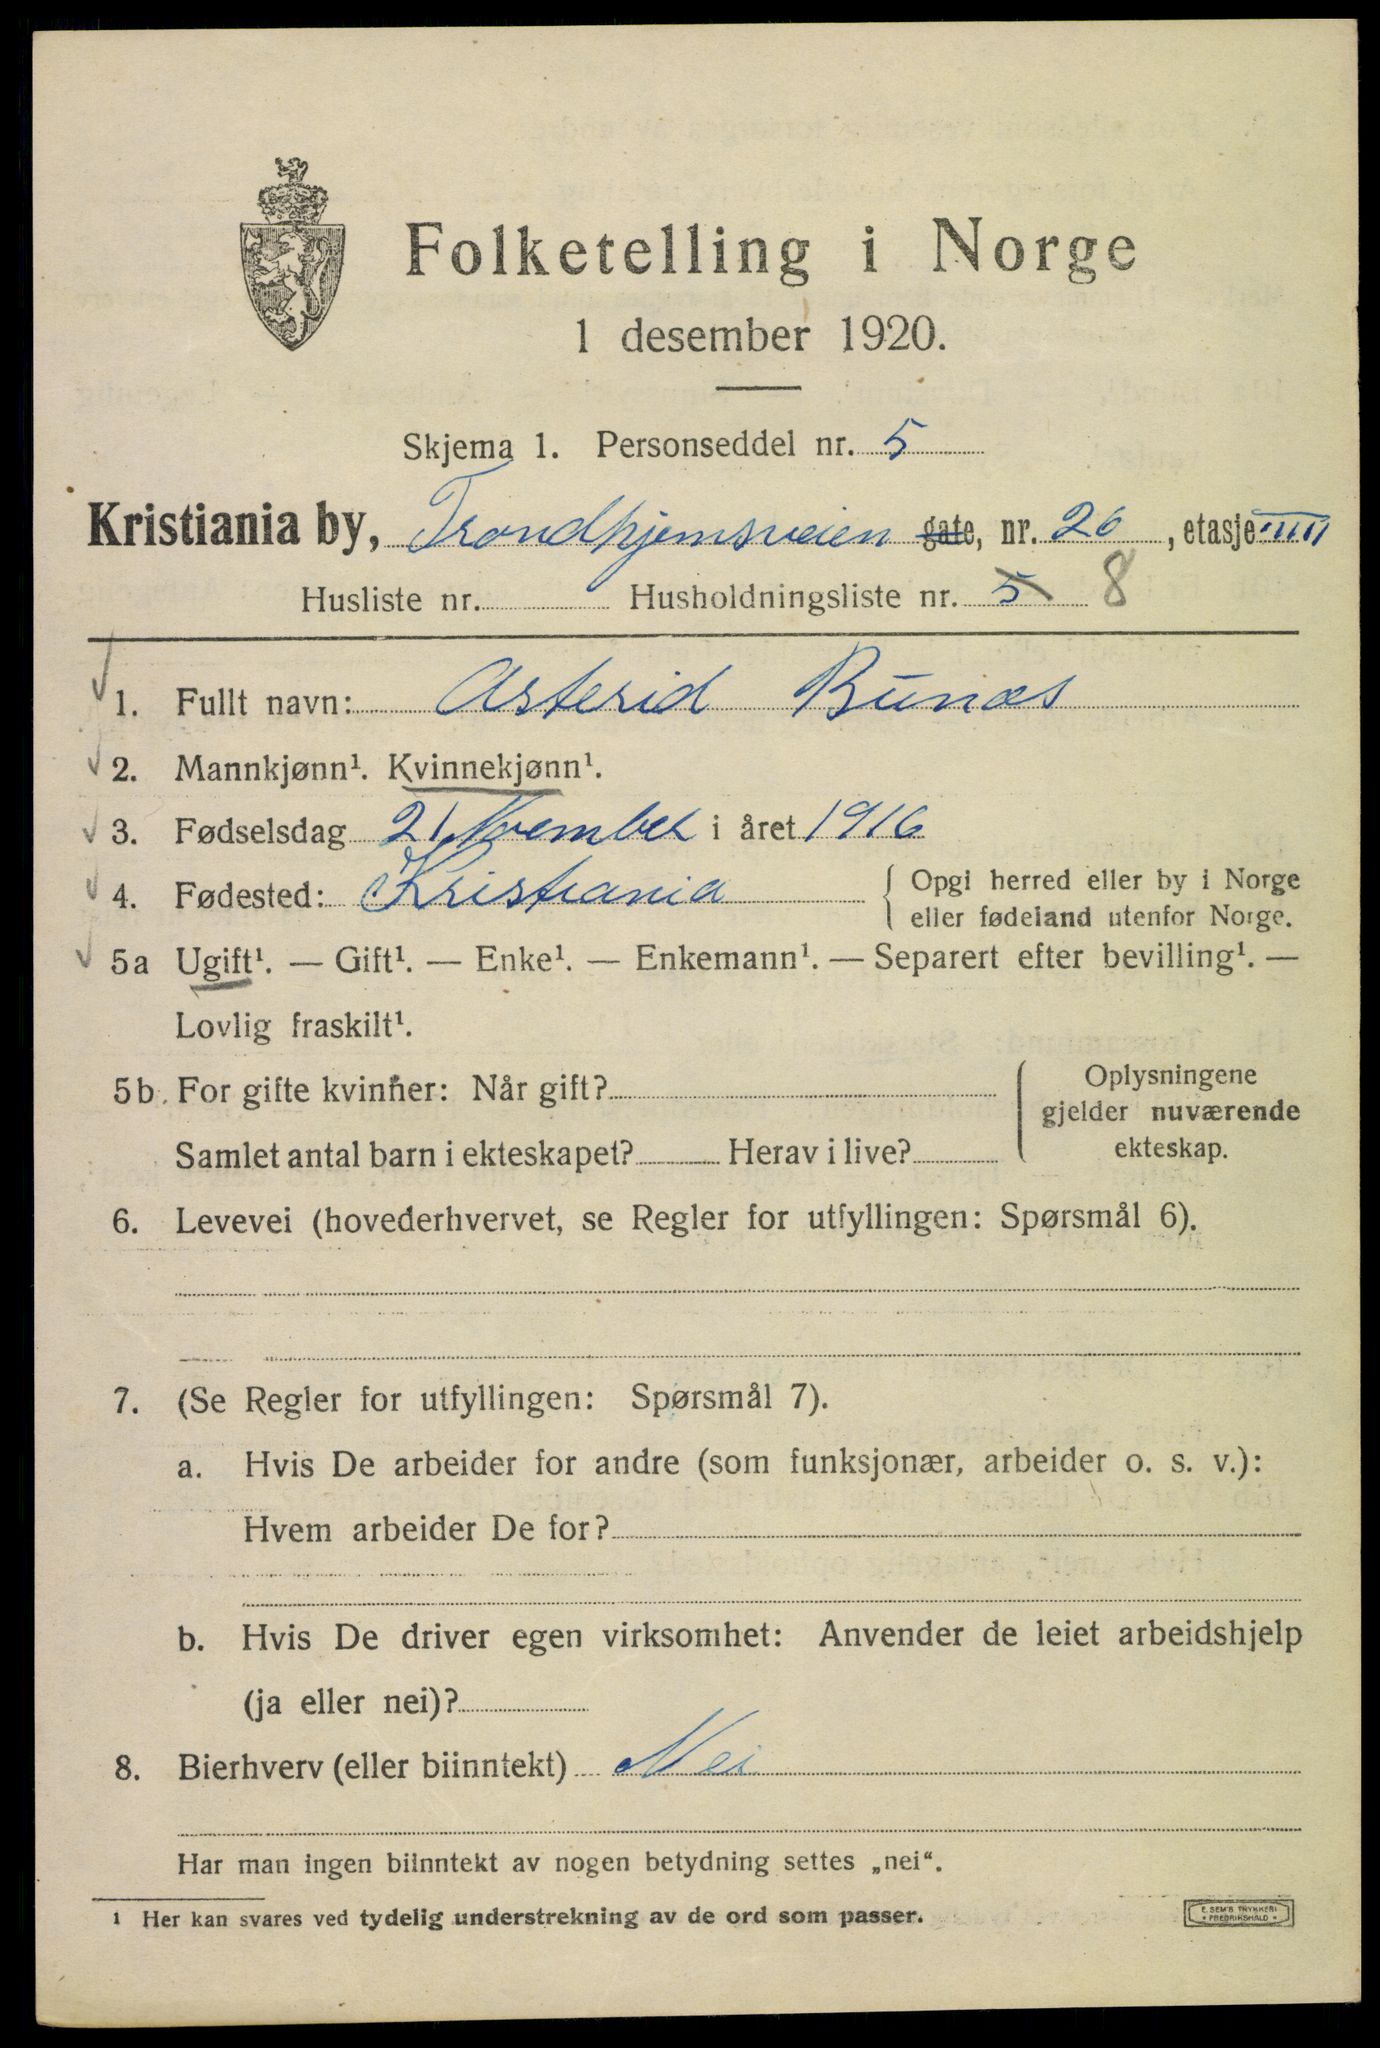 Folketelling i Norge
1 desember 1920.
Skjema 1. Personseddel nr. 5
Kristiania by, Trondhjemsveien gate, nr. 26, etasje III
Husliste nr. Husholdningsliste nr. 5 8
1. Fullt navn: Asterid Bunæs
2. Mannkjønn¹. Kvinnekjønn¹.
3. Fødselsdag 21 November i året 1916
4. Fødested: Kristiania { Opgi herred eller by i Norge
eller fødeland utenfor Norge.
5a Ugift¹. — Gift¹. — Enke¹. — Enkemann¹. — Separert efter bevilling¹. —
Lovlig fraskilt¹.
5b. For gifte kvinner: Når gift?
Samlet antal barn i ekteskapet? Herav i live?
Oplysningene
gjelder nuværende
ekteskap.
6. Levevei (hovederhvervet, se Regler for utfyllingen: Spørsmål 6).
7. (Se Regler for utfyllingen: Spørsmål 7).
a. Hvis De arbeider for andre (som funksjonær, arbeider o. s. v.):
Hvem arbeider De for?
b. Hvis De driver egen virksomhet: Anvender de leiet arbeidshjelp
(ja eller nei)?
8. Bierhverv (eller biinntekt) Nei
Har man ingen biinntekt av nogen betydning settes „nei“.
¹ Her kan svares ved tydelig understrekning av de ord som passer.
E. SEM'S TRYKKERI
• FREDRIKSHALD •